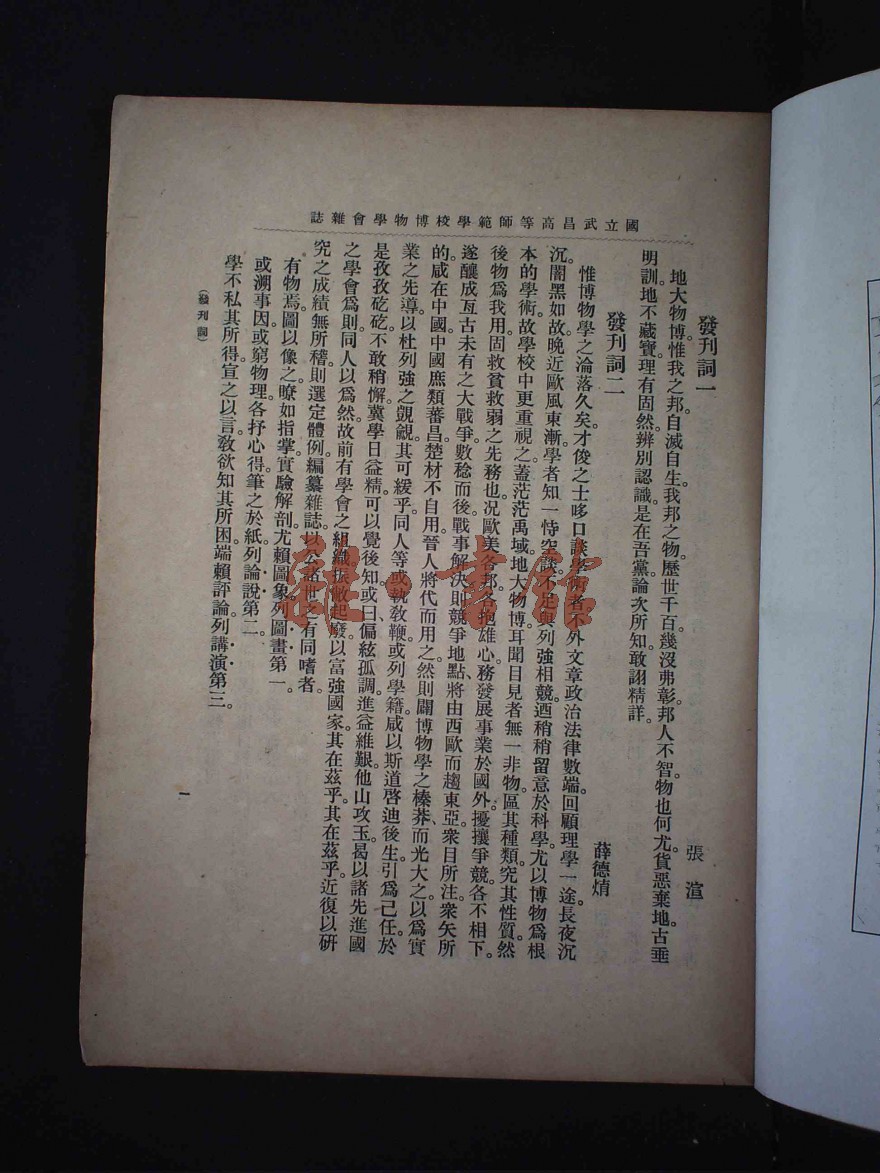 國立武昌高等師範學校博物學會雜誌
發刊詞一
張渲
地大物博。惟我之邦。自滅自生。我邦之物。歷世千百。幾沒弗彰。邦人不智。物也何尤。貨惡棄地。古垂
明訓。地不藏寶。理有固然。辨別認識。是在吾黨。論次所知。敢詡精詳。
發刊詞二
薛德焴
惟博物學之淪落久矣。才俊之士。哆口談學術者。不外文章政治法律數端。回顧理學一途。長夜沉
沉。闇黑如故。晚近歐風東漸。學者知一恃空談。不足與列強相競。迺稍稍留意於科學。尤以博物爲根
本的學術。故學校中更重視之。蓋茫茫禹域。地大物博。耳聞目見者。無一非物。區其種類。究其性質。然
後物爲我用。固救貧救弱之先務也。况歐美各邦。各抱雄心。務發展事業於國外。擾攘爭競。各不相下。
遂釀成亙古未有之大戰爭。數稔而後。戰事解決。則競爭地點、將由西歐而趨東亞。衆目所注。衆矢所
的。咸在中國。中國庶類蕃昌。楚材不自用。晉人將代而用之。然則闢博物學之榛莽、而光大之。以爲實
業之先導。以杜列強之覬覦。其可緩乎。同人等或執教鞭。或列學籍。咸以斯道啓迪後生。引爲己任。於
是孜孜矻矻。不敢稍懈。冀學日益精。可以覺後知。或曰、偏絃孤調。進益維艱。他山攻玉。曷以諸先進國
之學會爲則。同人以爲然。故前有學會之組織。振敝起廢。以富強國家。其在茲乎。其在茲乎。近復以研
究之成績無所稽。則選定體例。編纂雜誌。以公諸世之有同嗜者。
有物焉。圖以像之。瞭如指掌。實驗解剖。尤賴圖象。列圖畫第一。
或溯事因。或窮物理。各抒心得。筆之於紙。列論說第二。
學不私其所得。宣之以言。教欲知其所困。端賴評論。列講演第三。
（發刊詞）
一